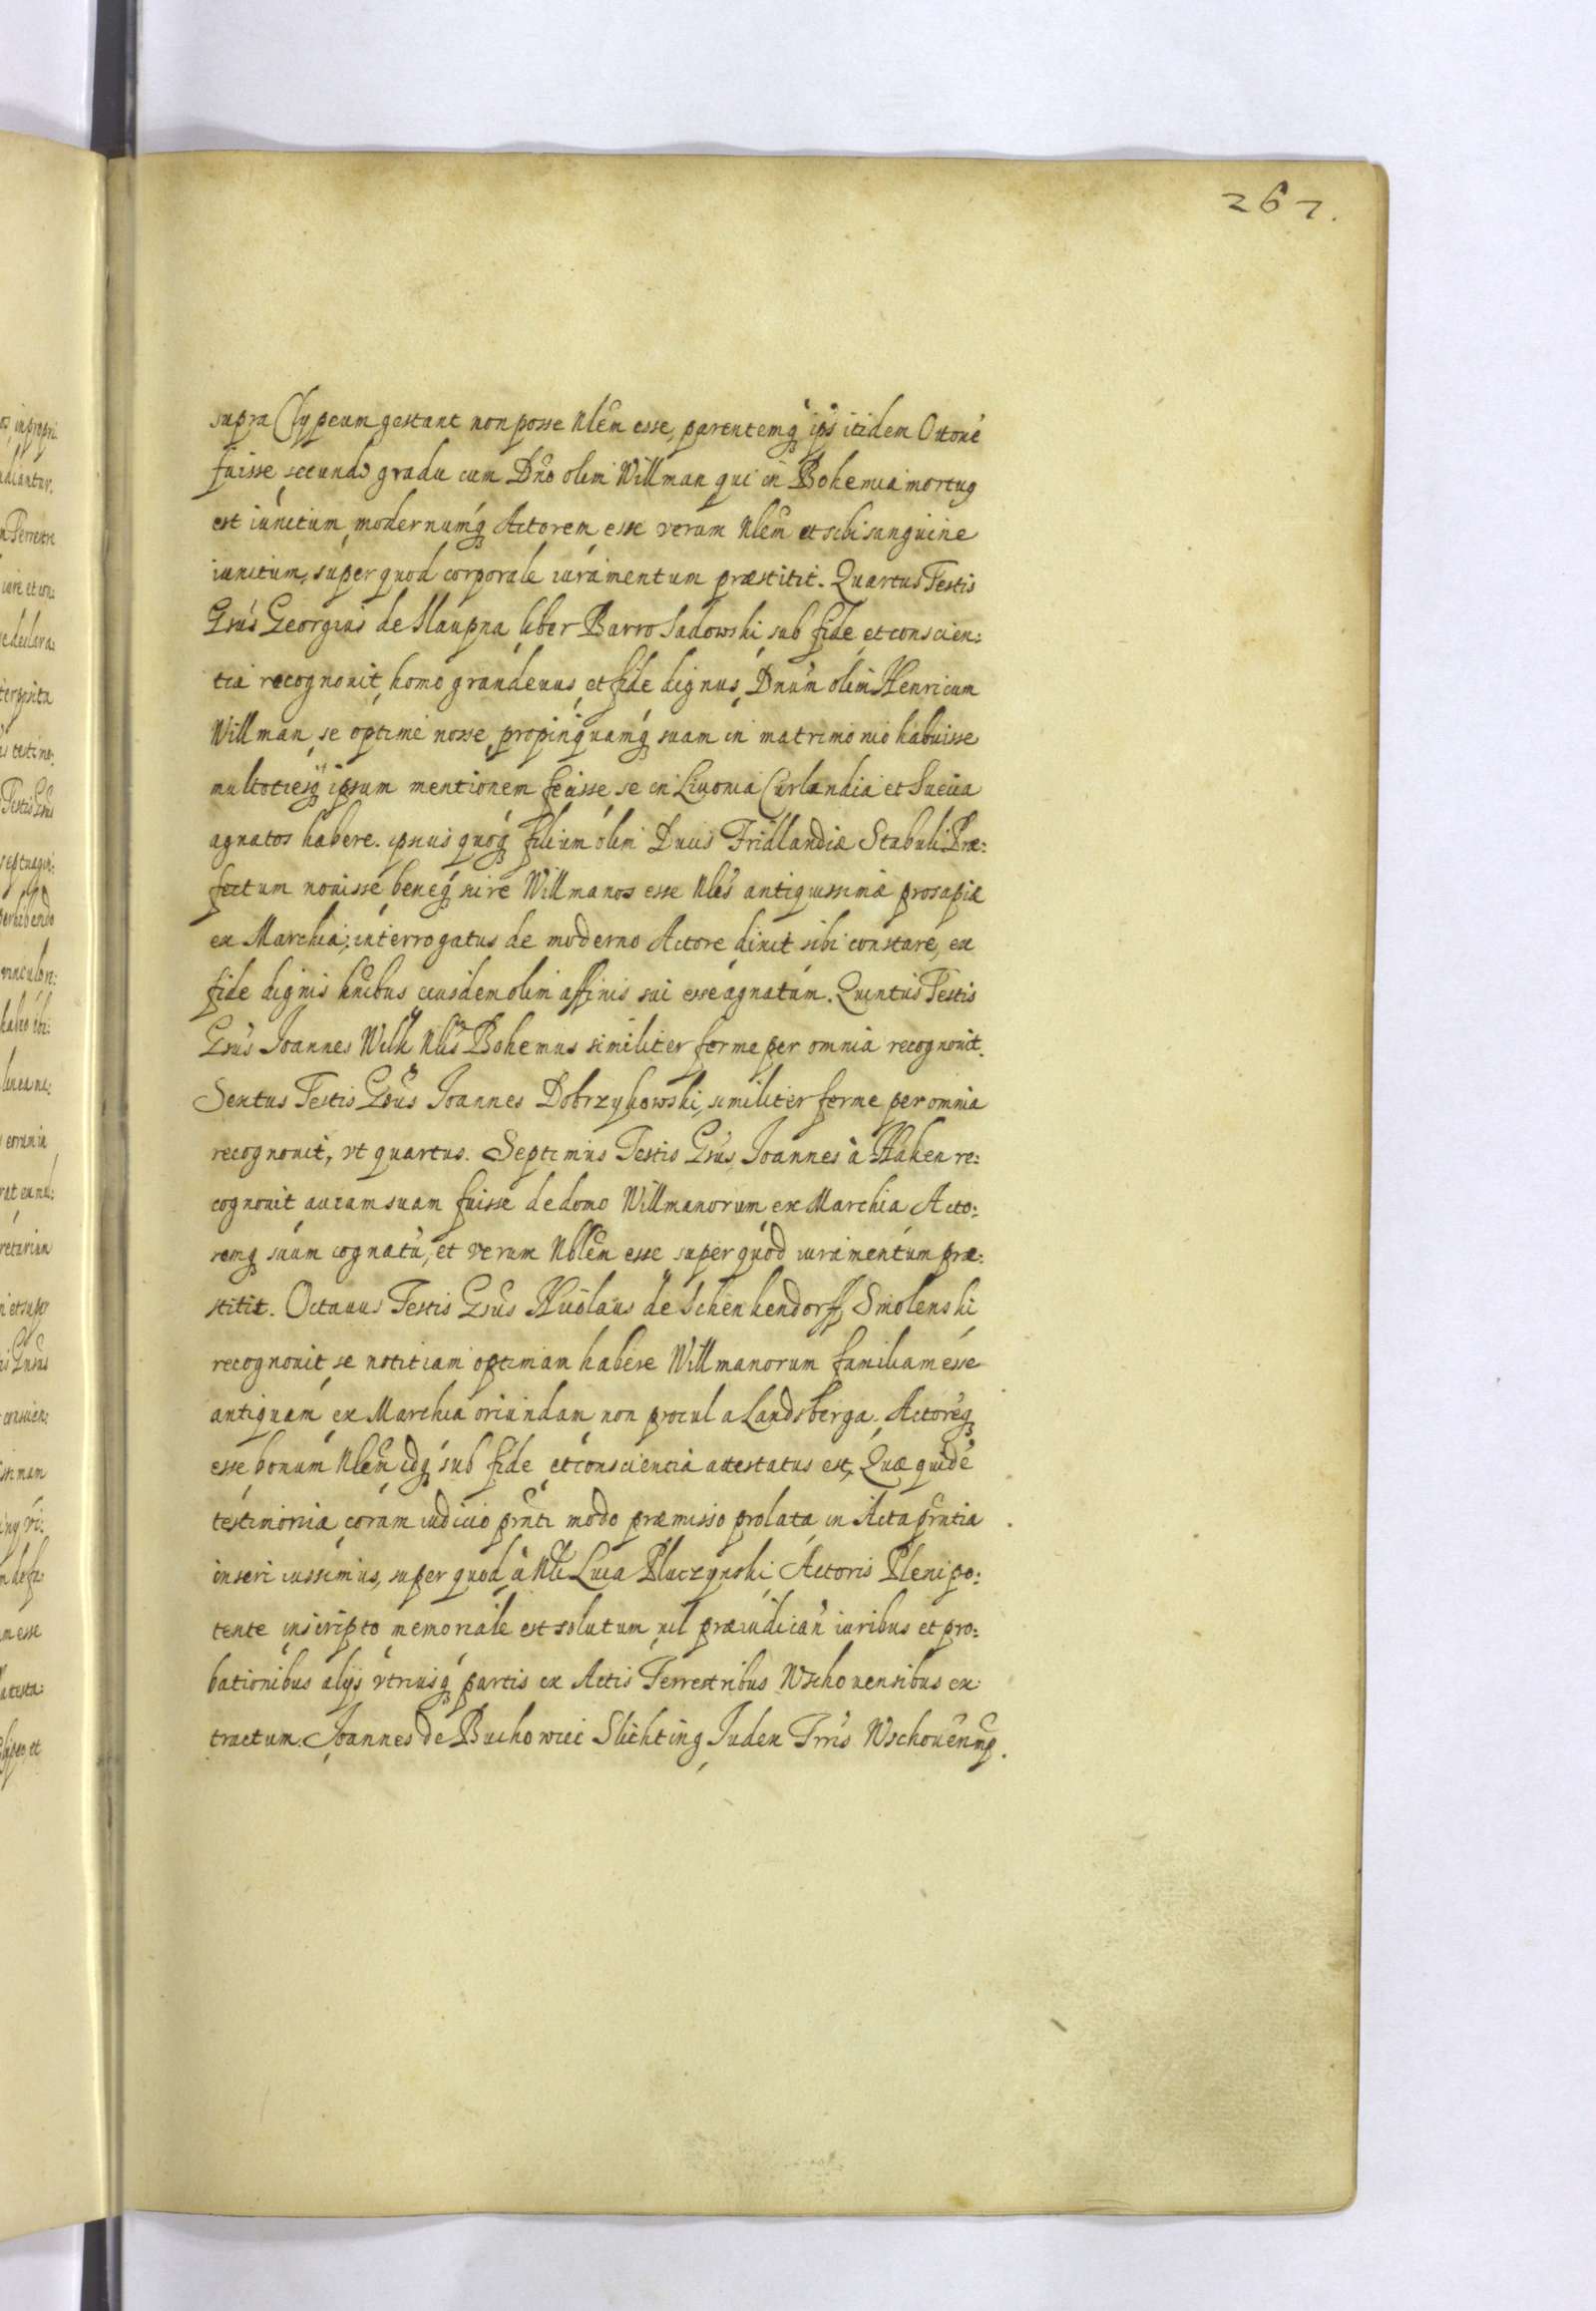 267.
supra Clypeum gestant non posse Nlem esse, parentemq ips itidem Ottoné
fuisse secundo gradu cum Dno olim Willman qui in Bohemia mortuq
est iunctum, modernumq Actorem esse verum Nlem et sibi sanguine
iunctum, super quod corporale iuramentum præstitit. Quartus Testis
Gsus Georgius de Slaupna liber Barro Sadowski sub fide et conscien:
tia recognouit, homo grandeuus et fide dignus, Dnum olim Henricum
Willman se optime nosse, propinquamq suam in matrimonio habuisse
multotiesq ipsum mentionem fecisse se in Liuonia Curlandia et Suecia
agnatos habere. ipsius quoq filium olim Ducis Fridlandiæ Stabuli Præ:
fectum nouisse beneq scire Willmanos esse Nles antiquissimæ prosapiæ
ex Marchia; interrogatus de moderno Actore dixit sibi constare, ex
fide dignis hnibus eiusdem olim affinis sui esse agnatum. Quintus Testis
Gsus Joannes Wilk Nlis Bohemus similiter ferme per omnia recognouit.
Sextus Testis Gsus Joannes Dobrzykowski, similiter ferme per omnia
recognouit, vt quartus. Septimus Testis Gsus Joannes à Haken re:
cognouit auiam suam fuisse de domo Willmanorum ex Marchia Acto:
remq suum cognatu, et verum Nblem esse super quod iuramentum præ:
stitit. Octauus Testis Gsus Nicolaus de Schenkendorff Smolenski
recognouit se notitiam optimam habere Willmanorum familiam esse
antiquam ex Marchia oriundam non procul a Landsberga. Actoreq
esse bonum Nlem idq sub fide et conscientia attestatus est, Quæ quidé
testimonia coram iudicio prnti modo præmisso prolata in Acta prntia
inseri iussimus, super quod à Nli Luca Pluczynski Actoris Plenipo:
tente inscripto memoriale est solutum nil præiudican iuribus et pro:
bationibus alijs vtriusq partis ex Actis Terrestribus Wschouensibus ex:
tractum. Joannes de Bucho wiec Slichting Judex Trris Wschouenng.